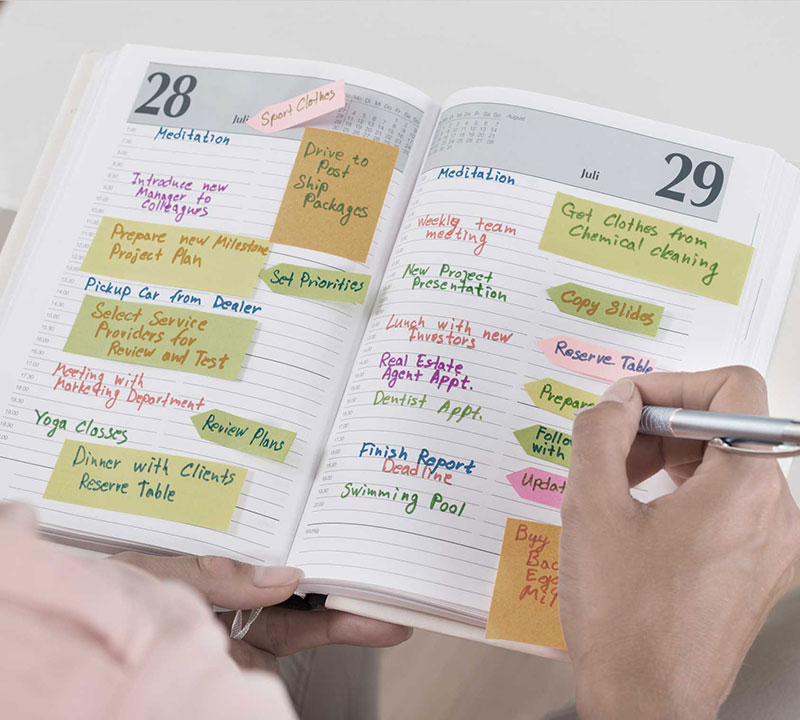 28
Juli
Sport Clothes
Meditation
Drive to
Post
Ship
Packages
Introduce new
Manager to
Colleagues
Prepare new Milestone
Project Plan
Set Priorities
Pickup Car from Dealer
Select Service
Providers for
Review and Test
Meeting with
Marketing Department
Yoga Classes
Review Plans
Dinner with Clients
Reserve Table
August
Juli
29
Meditation
Get Clothes from
Chemical cleaning
Weekly team
meeting
New Project
Presentation
Copy Slides
Lunch with new
Investors
Reserve Table
Real Estate
Agent Appt.
Prepare
Dentist Appt.
with
Finish Report
Deadline
Swimming Pool